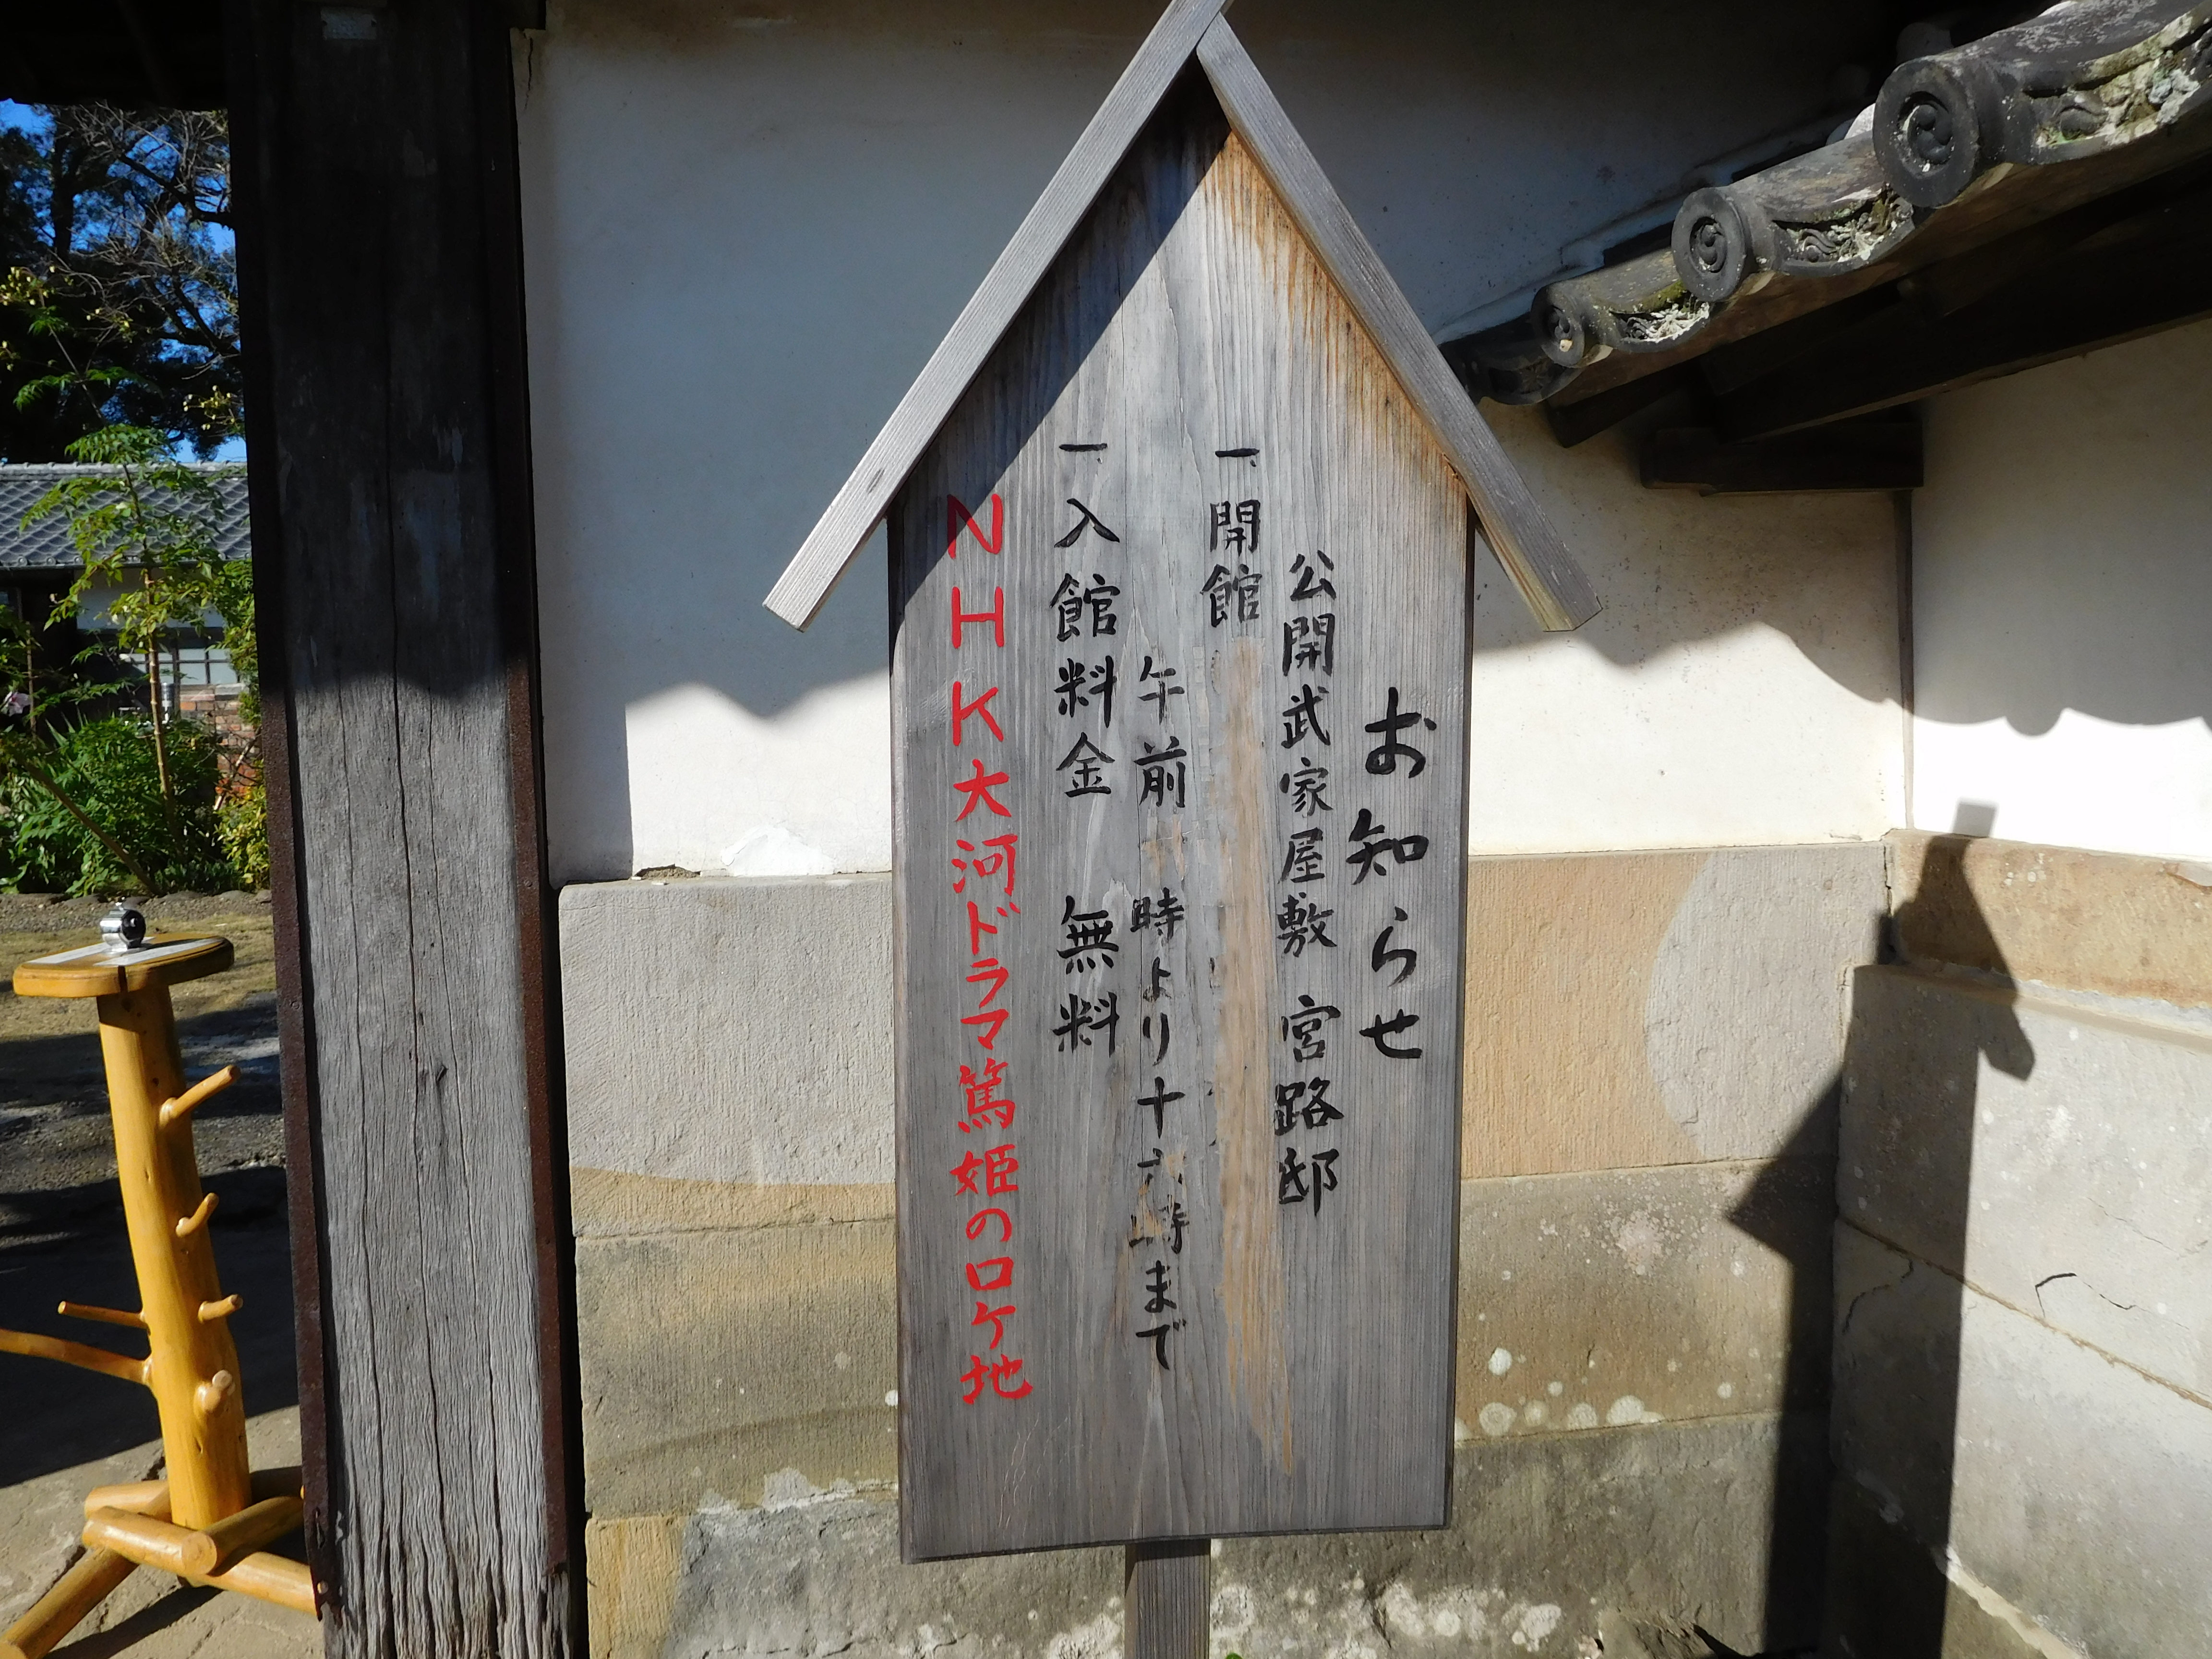 お知らせ
公開武家屋敷 宮路邸
一、開館
午前 時より十六時まで
一、入館料金 無料
NHK大河ドラマ篤姫のロケ地